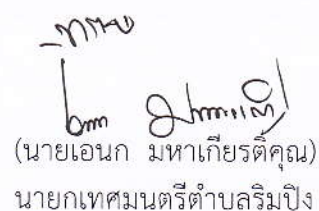 - ทราบ
(นายเอนก มหาเกียรติ์คุณ)
นายกเทศมนตรีตำบลริมปิง